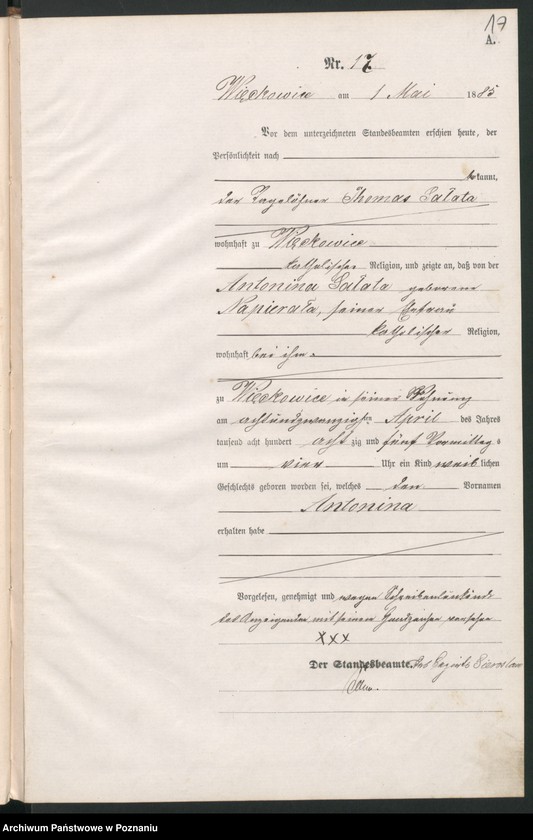 17
A.
Nr. 17
Więckowice am 1 Mai 1885
Vor dem unterzeichneten Standesbeamten erschien heute, der
Persönlichkeit nach
bekannt,
der Tagelöhner Thomas Sałata
wohnhaft zu Więckowice
katholischer Religion, und zeigte an, daß von der
Antonina Sałata geborene
Napierała, seiner Ehefrau
katholischer Religion,
wohnhaft bei ihm
zu Więckowice in seiner Wohnung
am achtundzwanzigsten April des Jahres
tausend acht hundert achtzig und fünf Vormittags
um vier Uhr ein Kind weiblichen
Geschlechts geboren worden sei, welches den Vornamen
Antonina
erhalten habe
Vorgelesen, genehmigt und wegen
des Anzeigenden mit seinem Handzeichen versehen
XXX
Der Standesbeamte.
Archiwum Państwowe w Poznaniu